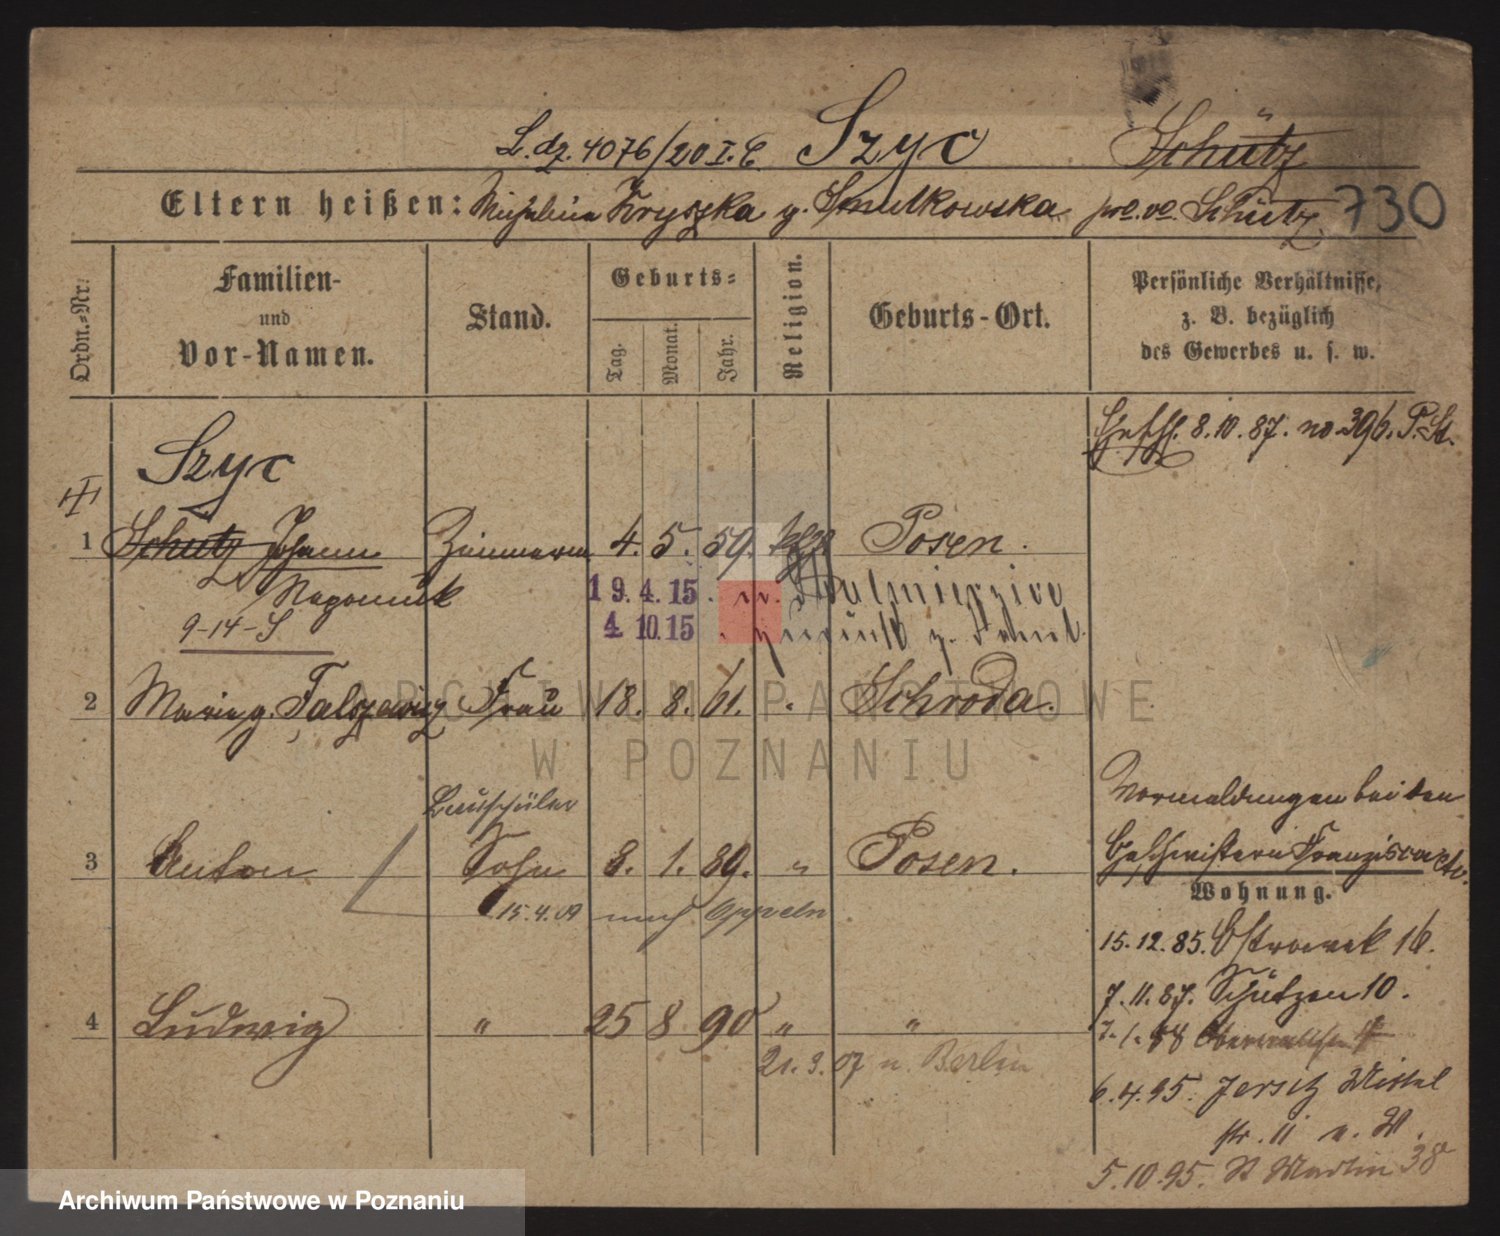 L.dz. 4076/20 I.E. Szyc Schütz
Eltern heißen: Michalina Kryszka g. Smulkowska pr. ve. Schütz 730
Ordn.-Nr.
Familien-
und
Vor-Namen.
Stand.
Geburts-
Tag.
Monat.
Jahr.
Religion.
Geburts-Ort.
Persönliche Verhältnisse,
z. B. bezüglich
des Gewerbes u. s. w.
8.10.87. no 396. P. St.
Szyc
1 Schütz Johann Zimmerm. 4. 5. 59. Posen.
Nepomuk 19. 4. 15
9-14-S 4. 10. 15
2 Marie g. Falszewicz Frau 18. 8. 61. Schroda.
Vormeldungen bei den
3 Anton Sohn 8. 1. 89. " Posen. Geschwistern Franzisca etc.
15.4.09 nach Oppeln
Wohnung.
15.12.85. Ostrowek 16.
7.11.87. Schützen 10.
4 Ludwig " 25 8 90 " "
7.1.88
21.3.07 n. Berlin
6.4.95. Jersitz Mittel
str. 11 n. W.
5.10.95. St Martin 38
ARCHIWUM PAŃSTWOWE
W POZNANIU
Archiwum Państwowe w Poznaniu